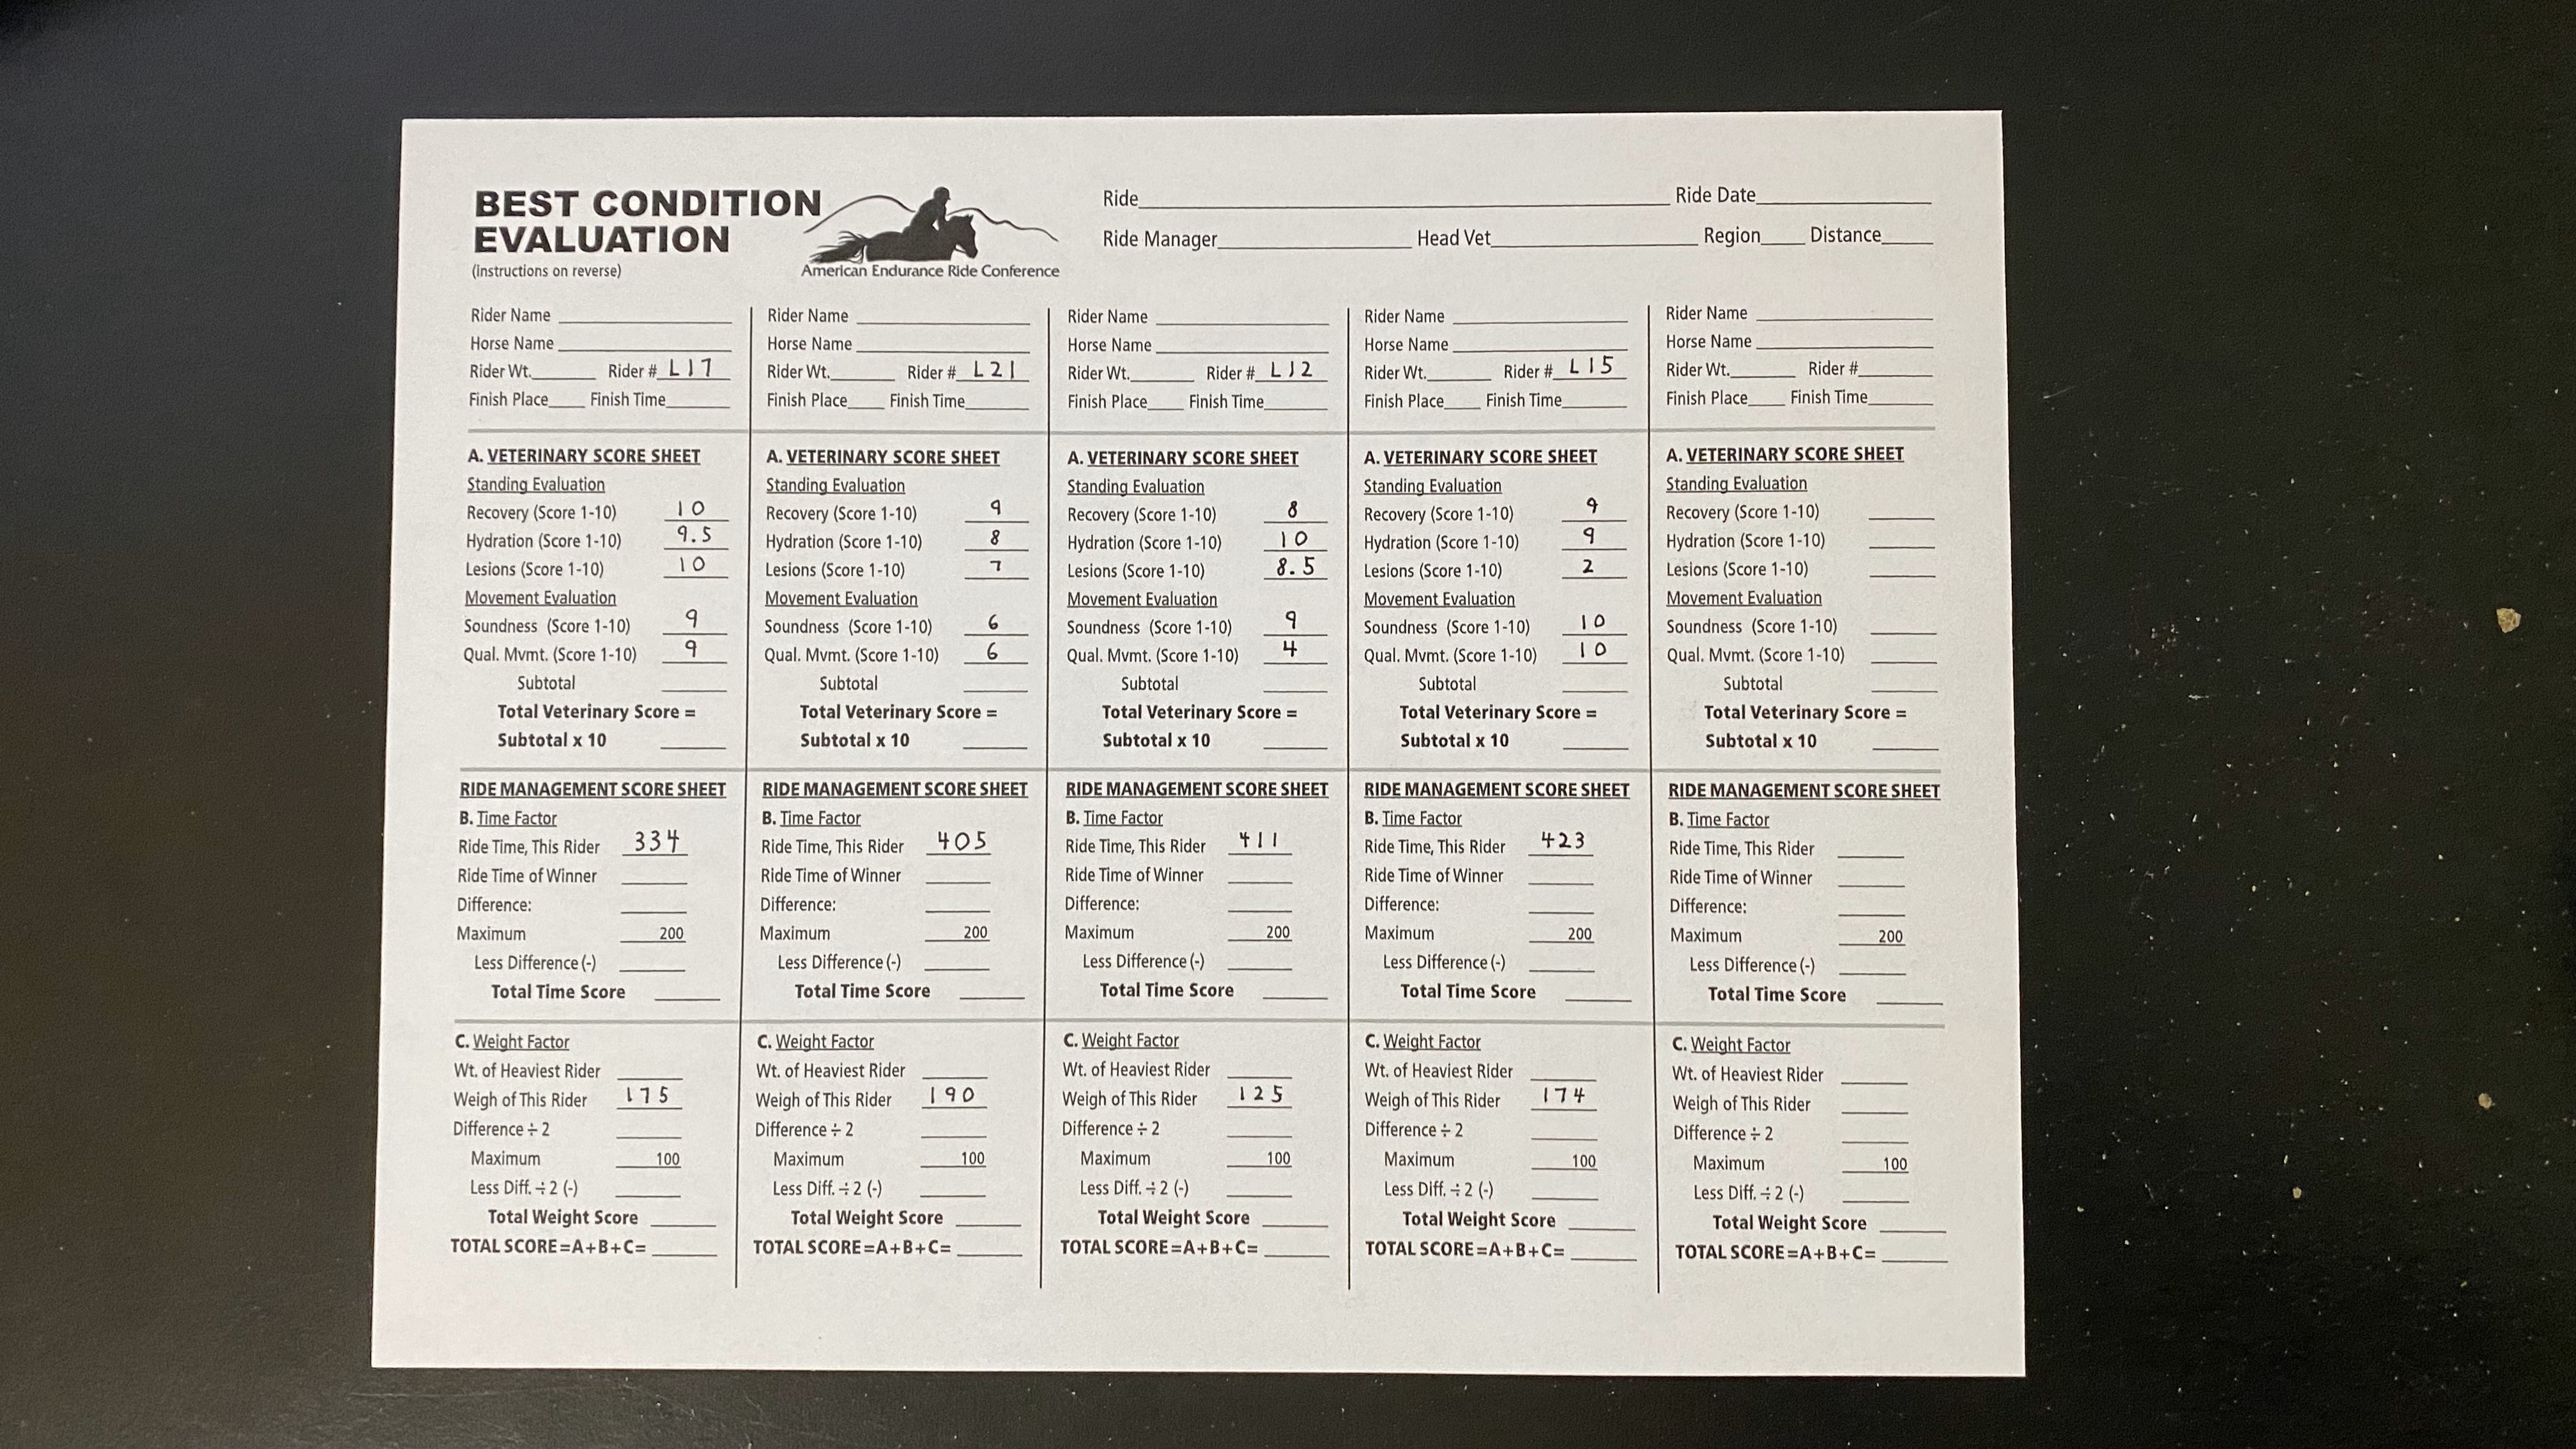 BEST CONDITION
EVALUATION
(Instructions on reverse)
American Endurance Ride Conference
Ride Ride Date
Ride Manager Head Vet Region Distance
Rider Name
Horse Name
Rider Wt. Rider # L17
Finish Place Finish Time
A. VETERINARY SCORE SHEET
Standing Evaluation
Recovery (Score 1-10) 10
Hydration (Score 1-10) 9.5
Lesions (Score 1-10) 10
Movement Evaluation
Soundness (Score 1-10) 9
Qual. Mvmt. (Score 1-10) 9
Subtotal
Total Veterinary Score =
Subtotal x 10
RIDE MANAGEMENT SCORE SHEET
B. Time Factor
Ride Time, This Rider 334
Ride Time of Winner
Difference:
Maximum 200
Less Difference (-)
Total Time Score
C. Weight Factor
Wt. of Heaviest Rider
Weigh of This Rider 175
Difference ÷ 2
Maximum 100
Less Diff. ÷ 2 (-)
Total Weight Score
TOTAL SCORE=A+B+C=
Rider Name
Horse Name
Rider Wt. Rider # L21
Finish Place Finish Time
A. VETERINARY SCORE SHEET
Standing Evaluation
Recovery (Score 1-10) 9
Hydration (Score 1-10) 8
Lesions (Score 1-10) 7
Movement Evaluation
Soundness (Score 1-10) 6
Qual. Mvmt. (Score 1-10) 6
Subtotal
Total Veterinary Score =
Subtotal x 10
RIDE MANAGEMENT SCORE SHEET
B. Time Factor
Ride Time, This Rider 405
Ride Time of Winner
Difference:
Maximum 200
Less Difference (-)
Total Time Score
C. Weight Factor
Wt. of Heaviest Rider
Weigh of This Rider 190
Difference ÷ 2
Maximum 100
Less Diff. ÷ 2 (-)
Total Weight Score
TOTAL SCORE=A+B+C=
Rider Name
Horse Name
Rider Wt. Rider # L12
Finish Place Finish Time
A. VETERINARY SCORE SHEET
Standing Evaluation
Recovery (Score 1-10) 8
Hydration (Score 1-10) 10
Lesions (Score 1-10) 8.5
Movement Evaluation
Soundness (Score 1-10) 9
Qual. Mvmt. (Score 1-10) 4
Subtotal
Total Veterinary Score =
Subtotal x 10
RIDE MANAGEMENT SCORE SHEET
B. Time Factor
Ride Time, This Rider 411
Ride Time of Winner
Difference:
Maximum 200
Less Difference (-)
Total Time Score
C. Weight Factor
Wt. of Heaviest Rider
Weigh of This Rider 125
Difference ÷ 2
Maximum 100
Less Diff. ÷ 2 (-)
Total Weight Score
TOTAL SCORE=A+B+C=
Rider Name
Horse Name
Rider Wt. Rider # L15
Finish Place Finish Time
A. VETERINARY SCORE SHEET
Standing Evaluation
Recovery (Score 1-10) 9
Hydration (Score 1-10) 9
Lesions (Score 1-10) 2
Movement Evaluation
Soundness (Score 1-10) 10
Qual. Mvmt. (Score 1-10) 10
Subtotal
Total Veterinary Score =
Subtotal x 10
RIDE MANAGEMENT SCORE SHEET
B. Time Factor
Ride Time, This Rider 423
Ride Time of Winner
Difference:
Maximum 200
Less Difference (-)
Total Time Score
C. Weight Factor
Wt. of Heaviest Rider
Weigh of This Rider 174
Difference ÷ 2
Maximum 100
Less Diff. ÷ 2 (-)
Total Weight Score
TOTAL SCORE=A+B+C=
Rider Name
Horse Name
Rider Wt. Rider #
Finish Place Finish Time
A. VETERINARY SCORE SHEET
Standing Evaluation
Recovery (Score 1-10)
Hydration (Score 1-10)
Lesions (Score 1-10)
Movement Evaluation
Soundness (Score 1-10)
Qual. Mvmt. (Score 1-10)
Subtotal
Total Veterinary Score =
Subtotal x 10
RIDE MANAGEMENT SCORE SHEET
B. Time Factor
Ride Time, This Rider
Ride Time of Winner
Difference:
Maximum 200
Less Difference (-)
Total Time Score
C. Weight Factor
Wt. of Heaviest Rider
Weigh of This Rider
Difference ÷ 2
Maximum 100
Less Diff. ÷ 2 (-)
Total Weight Score
TOTAL SCORE=A+B+C=